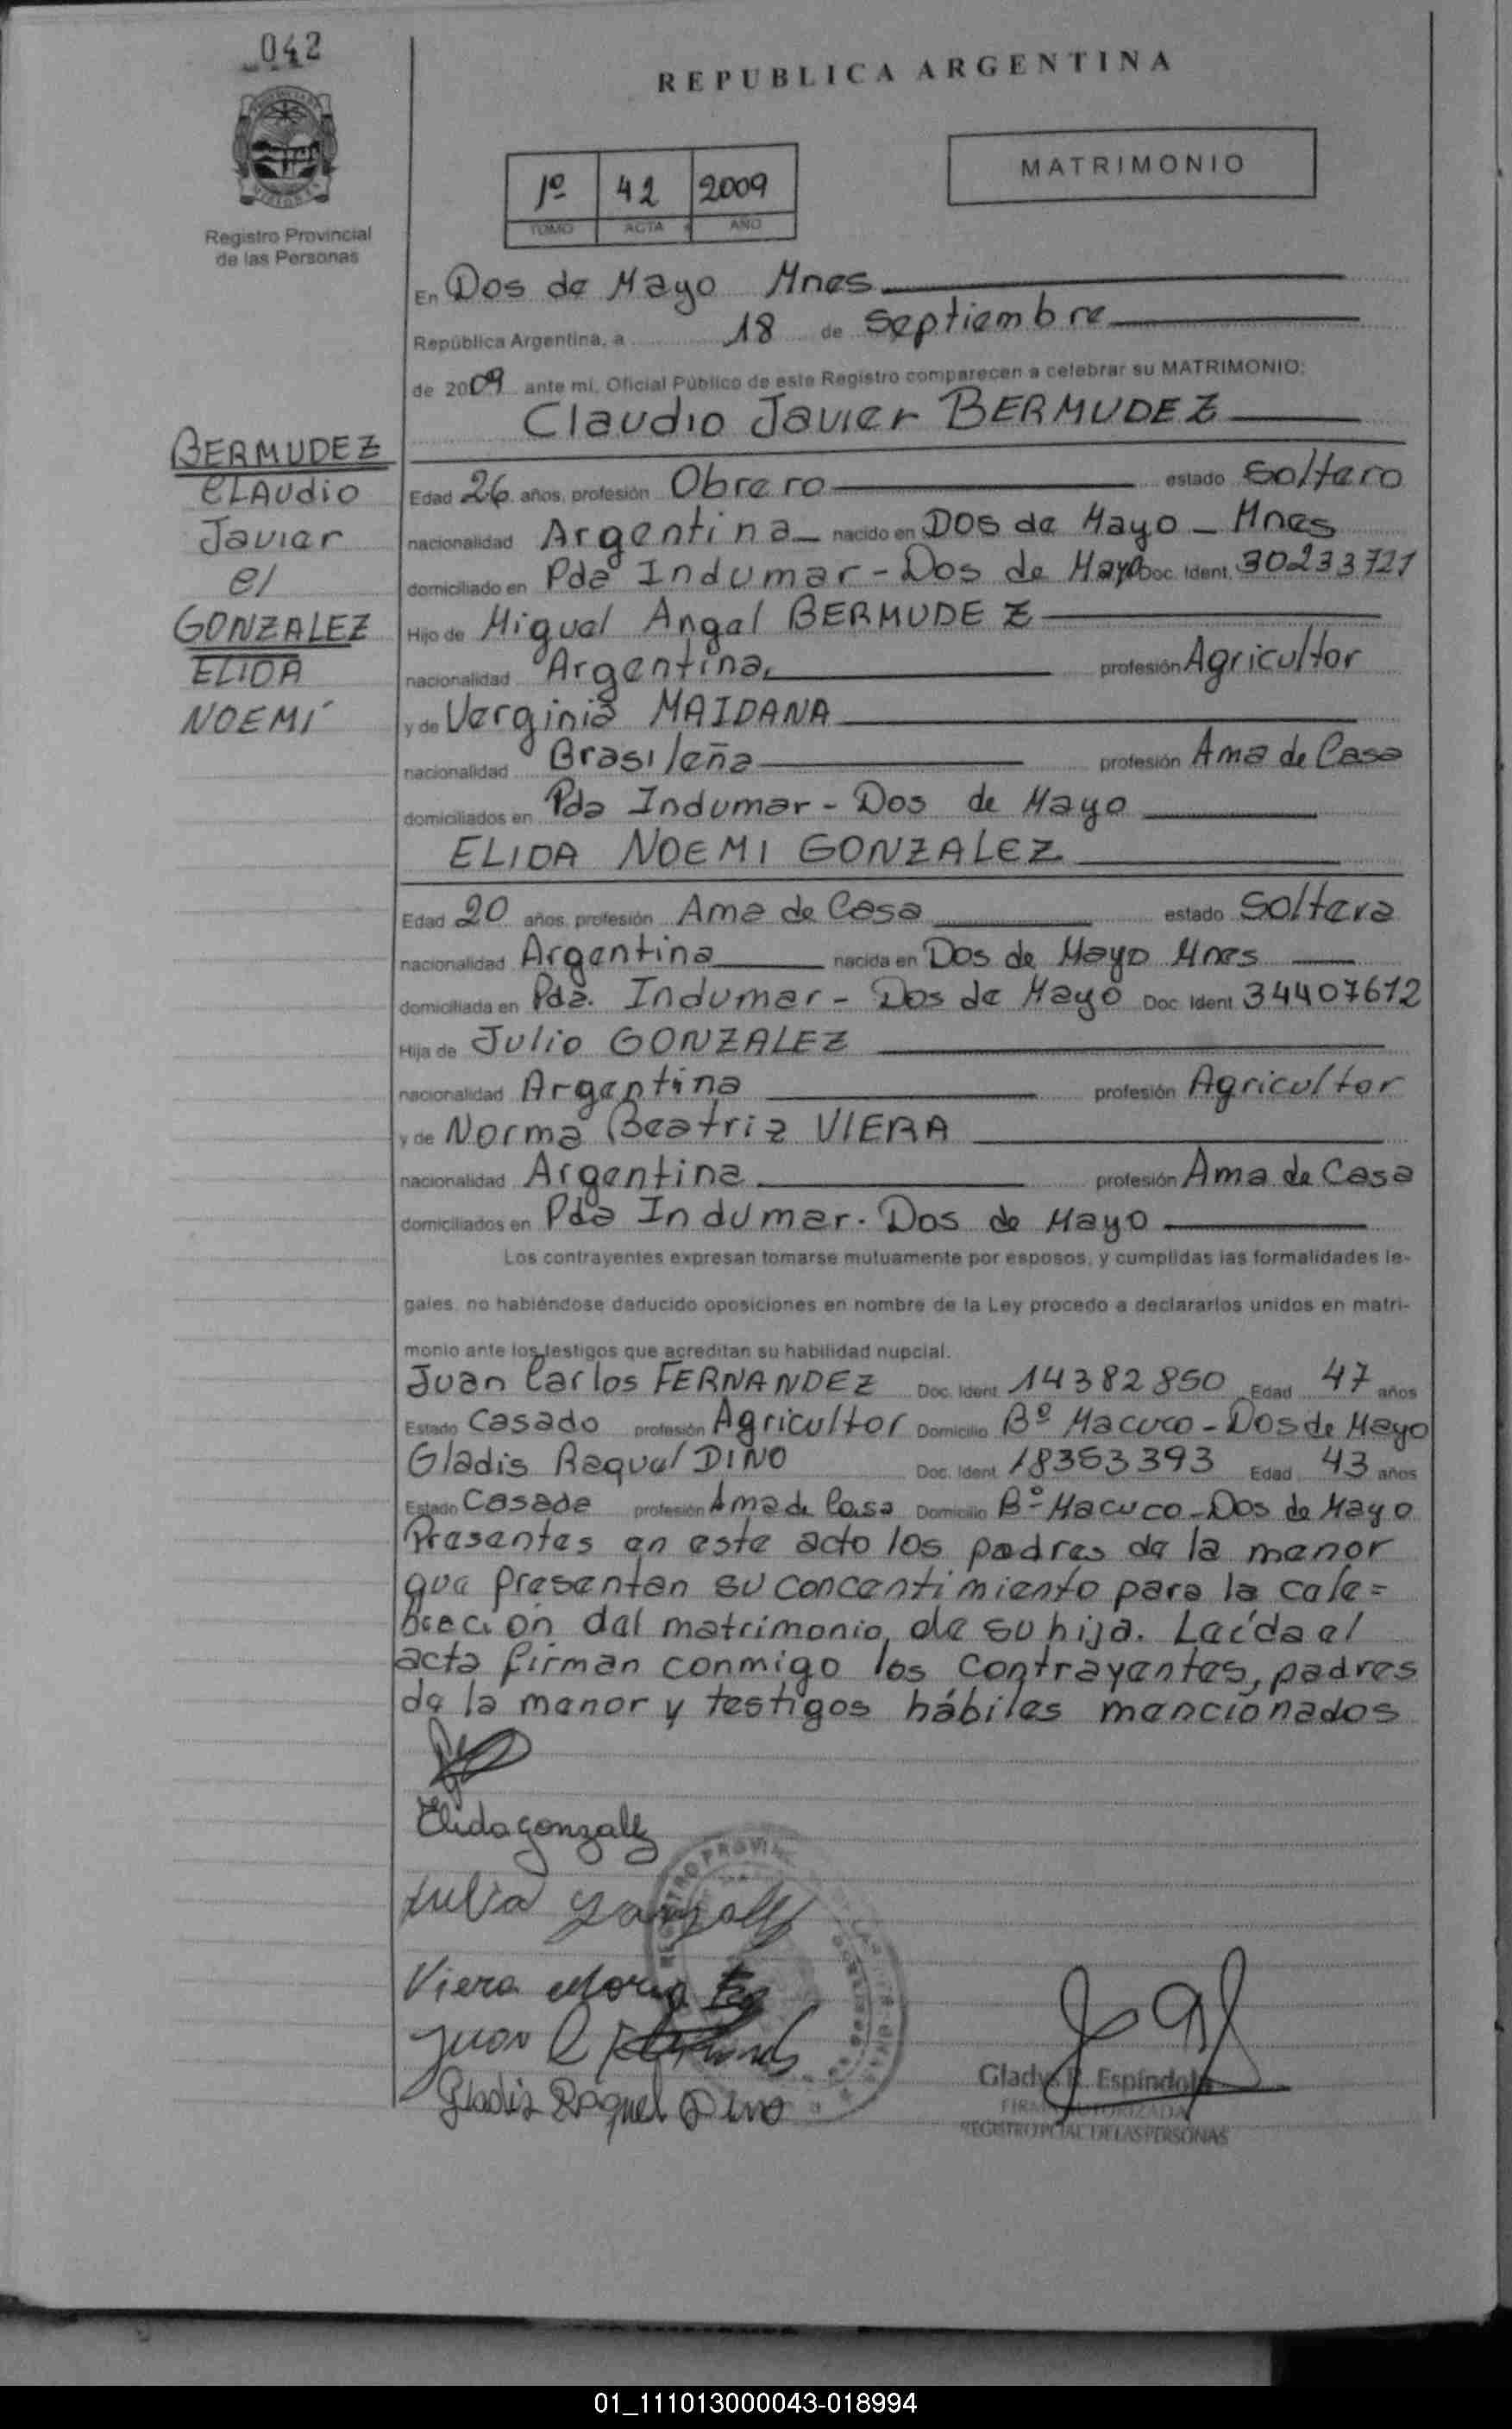 042
REPUBLICA ARGENTINA
MATRIMONIO
1º 42 2009
TOMO ACTA AÑO
Registro Provincial
de las Personas
En Dos de Mayo Mnes
República Argentina, a 18 de Septiembre
de 2009 ante mí, Oficial Público de este Registro comparecen a celebrar su MATRIMONIO:
Claudio Javier BERMUDEZ
BERMUDEZ
CLAUdio
Javier
el
GONZALEZ
ELIDA
NOEMÍ
Edad 26 años, profesión Obrero estado Soltero
nacionalidad Argentina nacido en Dos de Mayo - Mnes
domiciliado en Pda Indumar - Dos de Mayo Doc. Ident. 30233721
Hijo de Miguel Angel BERMUDEZ
nacionalidad Argentina, profesión Agricultor
y de Verginia MAIDANA
nacionalidad Brasileña profesión Ama de Casa
domiciliados en Pda Indumar - Dos de Mayo
ELIDA NOEMI GONZALEZ
Edad 20 años, profesión Ama de Casa estado Soltera
nacionalidad Argentina nacida en Dos de Mayo Mnes
domiciliada en Pda. Indumar - Dos de Mayo Doc. Ident. 34407612
Hija de Julio GONZALEZ
nacionalidad Argentina profesión Agricultor
y de Norma Beatriz VIERA
nacionalidad Argentina profesión Ama de Casa
domiciliados en Pda Indumar. Dos de Mayo
Los contrayentes expresan tomarse mutuamente por esposos, y cumplidas las formalidades le-
gales, no habiéndose deducido oposiciones en nombre de la Ley procedo a declararlos unidos en matri-
monio ante los testigos que acreditan su habilidad nupcial.
Juan Carlos FERNANDEZ Doc. Ident 14382850 Edad 47 años
Estado Casado profesión Agricultor Domicilio Bº Macuco - Dos de Mayo
Gladis Raquel DINO Doc. Ident. 18353393 Edad 43 años
Estado Casada profesión Ama de Casa Domicilio Bº Macuco - Dos de Mayo
Presentes en este acto los padres de la menor
que presentan su concentimiento para la cele=
bración del matrimonio, de su hija. Leída el
acta firman conmigo los contrayentes, padres
de la menor y testigos hábiles mencionados
Elida gonzalez
Viera Norma
Juan C
Gladis Raquel Dino
REGISTRO PROVIN
Gladys R. Espíndola
FIRMA AUTORIZADA
REGISTRO PCIAL DE LAS PERSONAS
01_111013000043-018994